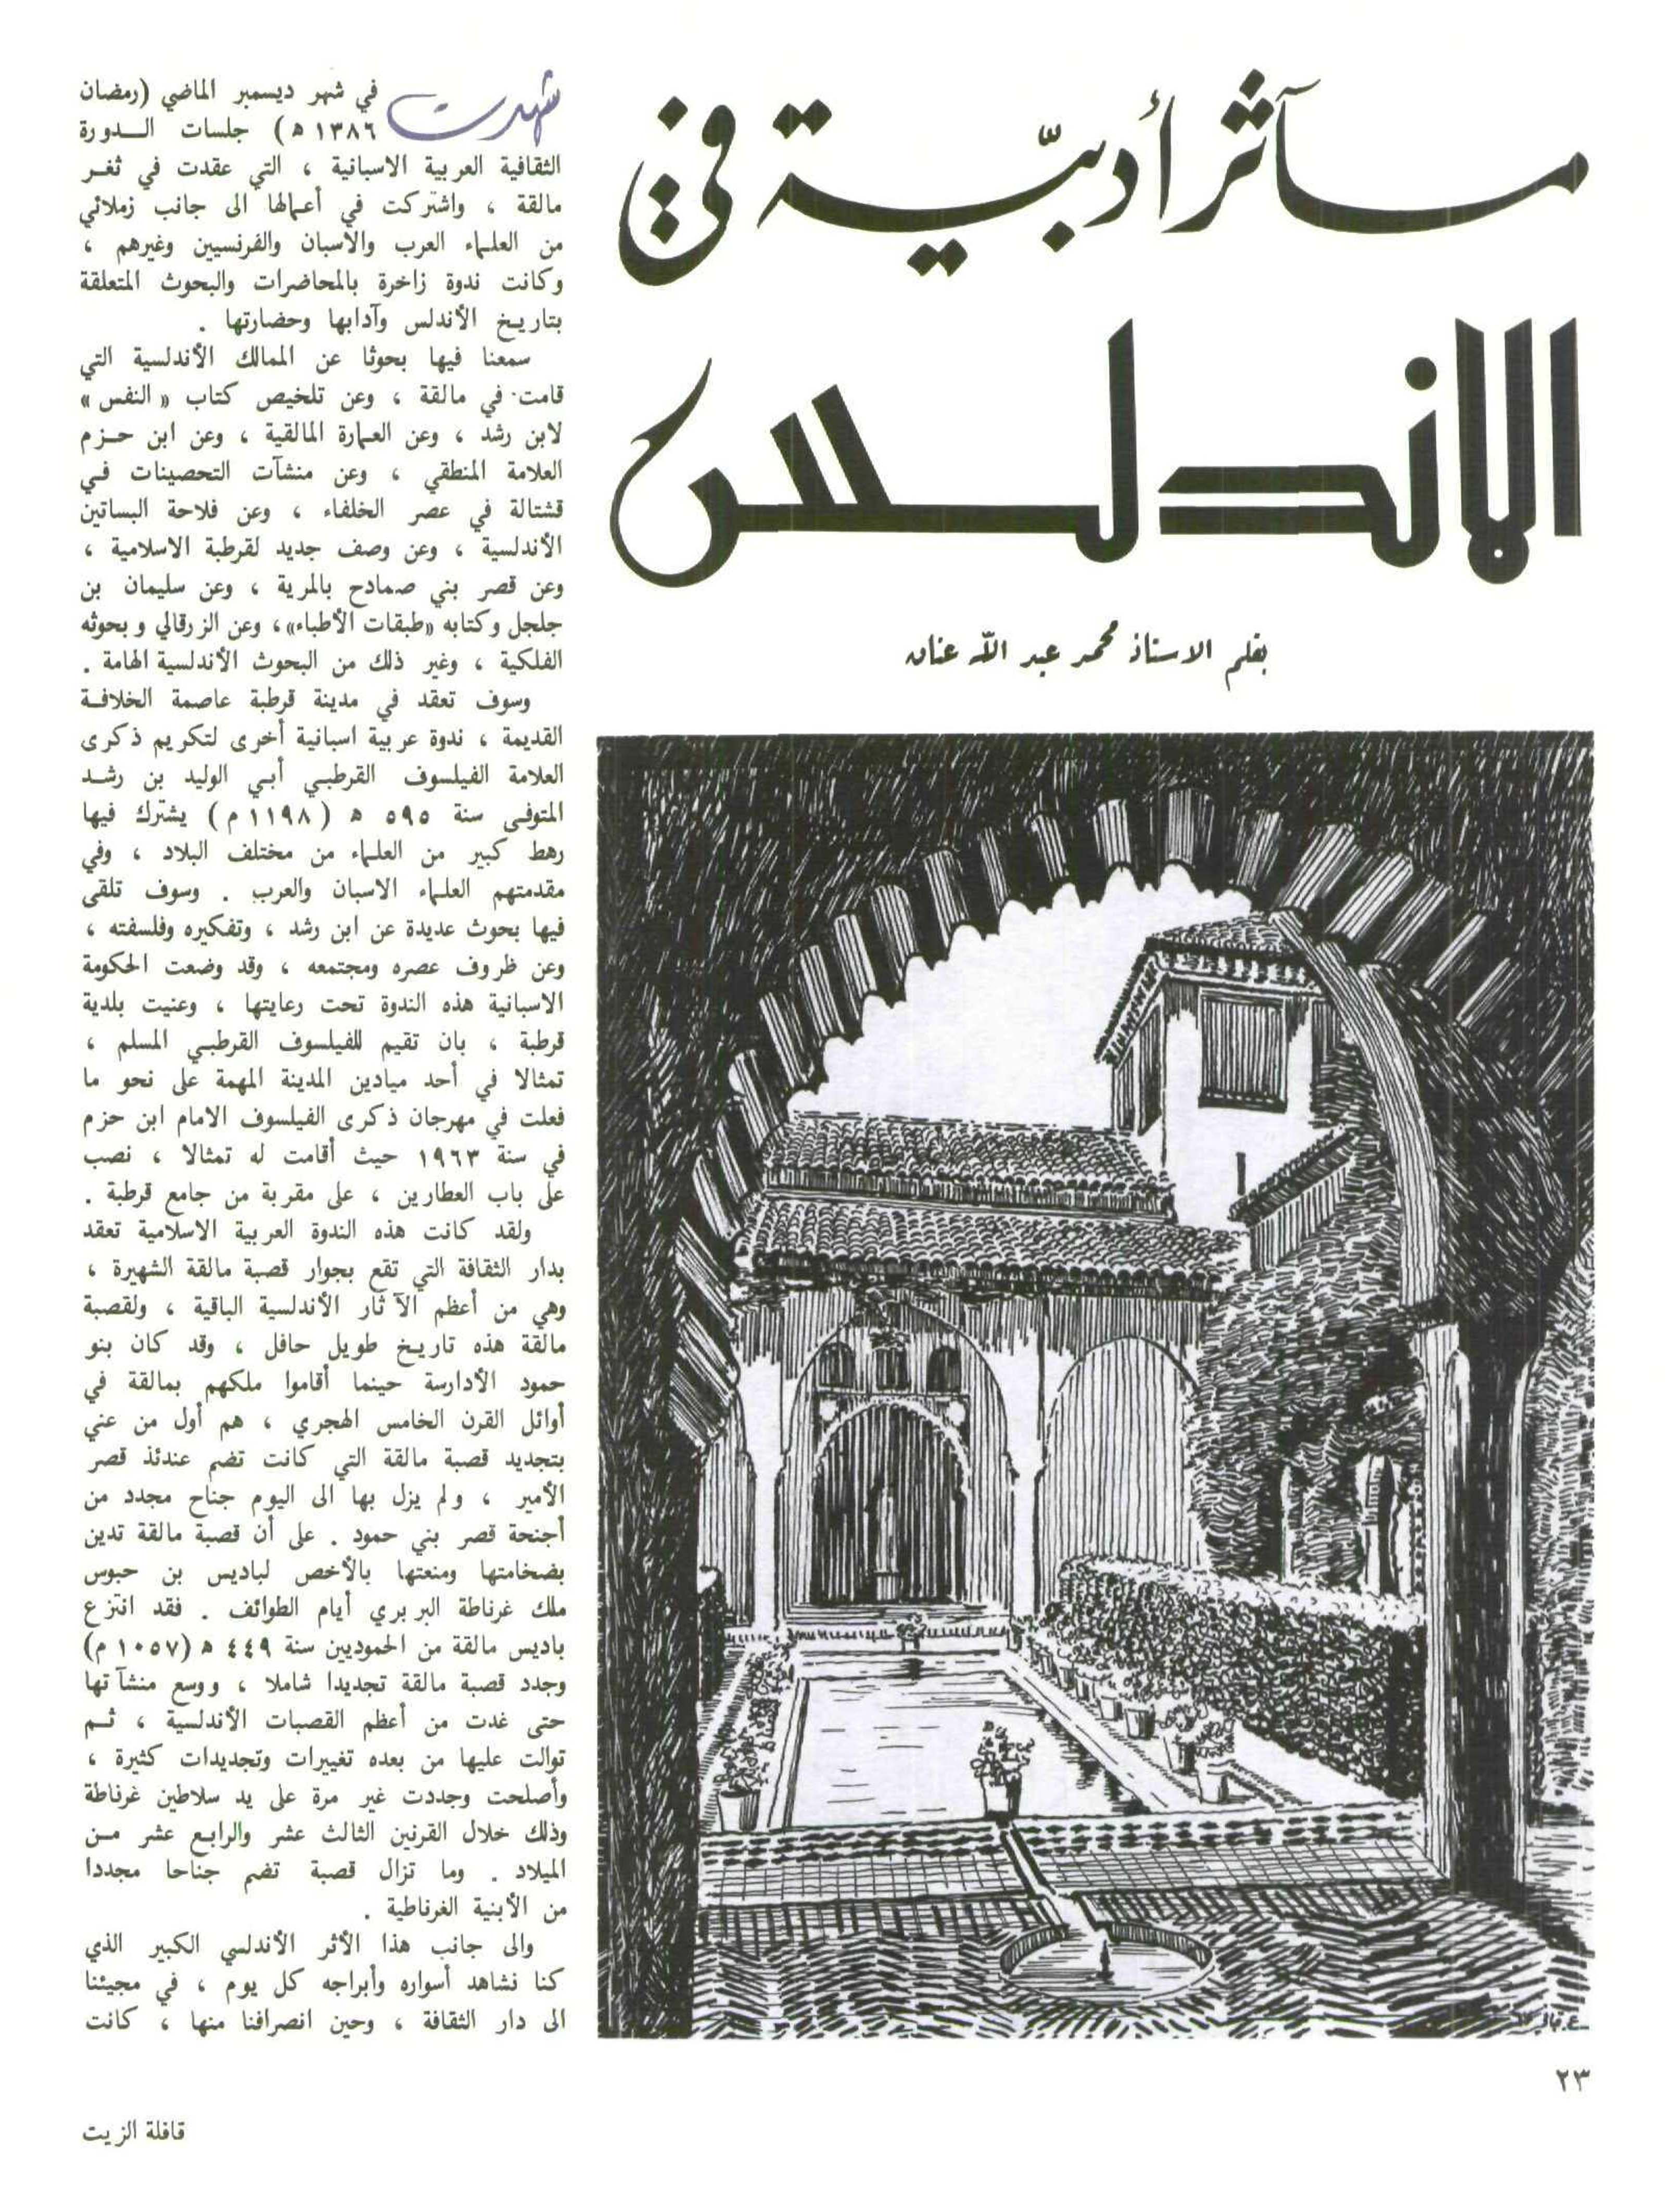 مآثر أدبيّة في
الاندلس
بقلم الاستاذ محمد عبد اللّه عنان
شهدت في شهر ديسمبر الماضي (رمضان
١٣٨٦ ه) جلسات الدورة
الثقافية العربية الاسبانية ، التي عقدت في ثغر
مالقة ، واشتركت في أعمالها الى جانب زملائي
من العلماء العرب والاسبان والفرنسيين وغيرهم ،
وكانت ندوة زاخرة بالمحاضرات والبحوث المتعلقة
بتاريخ الأندلس وآدابها وحضارتها .
سمعنا فيها بحوثا عن الممالك الأندلسية التي
قامت في مالقة ، وعن تلخيص كتاب « النفس »
لابن رشد ، وعن العمارة المالقية ، وعن ابن حزم
العلامة المنطقي ، وعن منشآت التحصينات في
قشتالة في عصر الخلفاء ، وعن فلاحة البساتين
الأندلسية ، وعن وصف جديد لقرطبة الاسلامية ،
وعن قصر بني صمادح بالمرية ، وعن سليمان بن
جلجل وكتابه «طبقات الأطباء»، وعن الزرقالي وبحوثه
الفلكية ، وغير ذلك من البحوث الأندلسية الهامة .
وسوف تعقد في مدينة قرطبة عاصمة الخلافة
القديمة ، ندوة عربية اسبانية أخرى لتكريم ذكرى
العلامة الفيلسوف القرطبي أبي الوليد بن رشد
المتوفى سنة ٥٩٥ ه (١١٩٨ م) يشترك فيها
رهط كبير من العلماء من مختلف البلاد ، وفي
مقدمتهم العلماء الاسبان والعرب . وسوف تلقى
فيها بحوث عديدة عن ابن رشد ، وتفكيره وفلسفته ،
وعن ظروف عصره ومجتمعه ، وقد وضعت الحكومة
الاسبانية هذه الندوة تحت رعايتها ، وعنيت بلدية
قرطبة ، بان تقيم للفيلسوف القرطبي المسلم ،
تمثالا في أحد ميادين المدينة المهمة على نحو ما
فعلت في مهرجان ذكرى الفيلسوف الامام ابن حزم
في سنة ١٩٦٣ حيث أقامت له تمثالا ، نصب
على باب العطارين ، على مقربة من جامع قرطبة .
ولقد كانت هذه الندوة العربية الاسلامية تعقد
بدار الثقافة التي تقع بجوار قصبة مالقة الشهيرة ،
وهي من أعظم الآثار الأندلسية الباقية ، ولقصبة
مالقة هذه تاريخ طويل حافل ، وقد كان بنو
حمود الأدارسة حينما أقاموا ملكهم بمالقة في
أوائل القرن الخامس الهجري ، هم أول من عني
بتجديد قصبة مالقة التي كانت تضم عندئذ قصر
الأمير ، ولم يزل بها الى اليوم جناح مجدد من
أجنحة قصر بني حمود . على أن قصبة مالقة تدين
بضخامتها ومنعتها بالأخص لباديس بن حبوس
ملك غرناطة البربري أيام الطوائف . فقد انتزع
باديس مالقة من الحموديين سنة ٤٤٩ ه (١٠٥٧ م)
وجدد قصبة مالقة تجديدا شاملا ، ووسع منشآتها
حتى غدت من أعظم القصبات الأندلسية ، ثم
توالت عليها من بعده تغييرات وتجديدات كثيرة ،
وأصلحت وجددت غير مرة على يد سلاطين غرناطة
وذلك خلال القرنين الثالث عشر والرابع عشر من
الميلاد . وما تزال قصبة تضم جناحا مجددا
من الأبنية الغرناطية .
والى جانب هذا الأثر الأندلسي الكبير الذي
كنا نشاهد أسواره وأبراجه كل يوم ، في مجيئنا
الى دار الثقافة ، وحين انصرافنا منها ، كانت
٢٣
قافلة الزيت